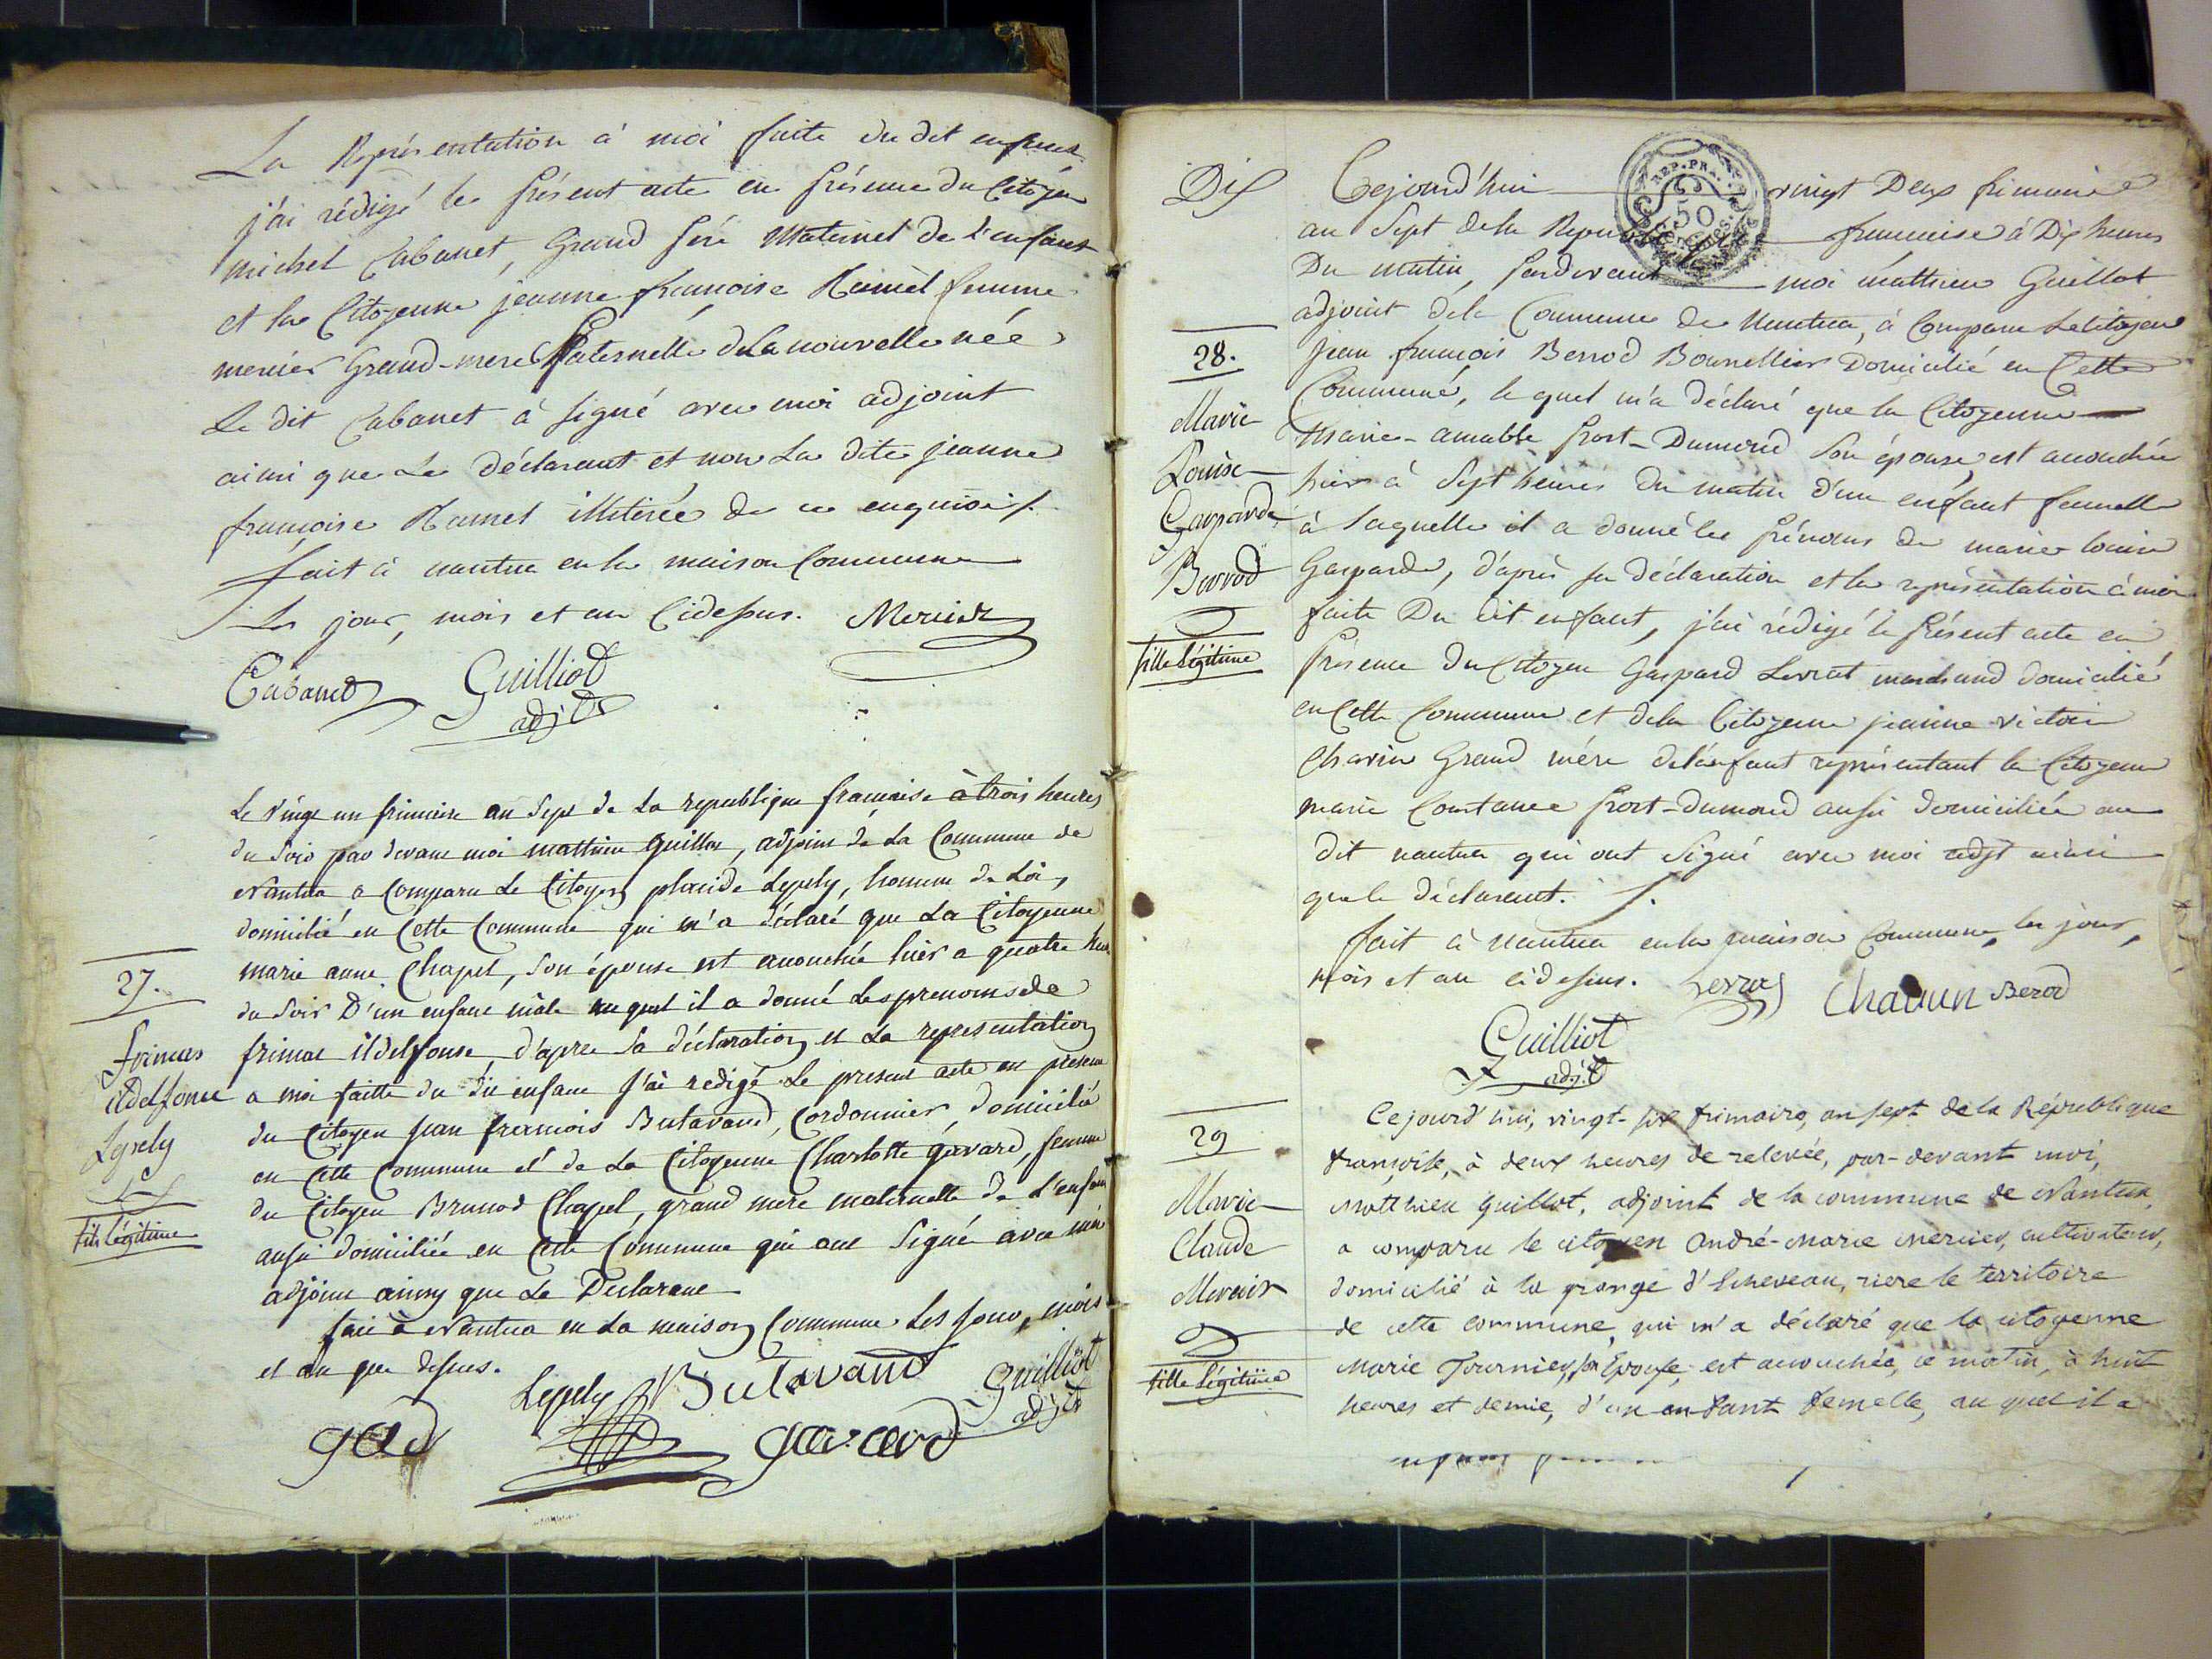 La Représentation à moi faite du dit enfant
j'ai rédigé le présent acte en présence du Citoyen
michel Cabanet, Grand père maternel de l'enfant
et la Citoyenne jeanne françoise Ramel femme
mercier Grand-mere Paternelle de la nouvelle née
Le dit Cabanet à signé avec moi adjoint
ainsi que Le déclarant et non La dite jeanne
françoise Ramel illitérée de ce enquise
fait à nantua en la maison Commune
Les jour, mois et an Cidessus. Mercier
Cabanet Guilliot
adjt
Le vingt un frimaire an Sept de La republique francaise à trois heures
du Soir par devant moi mathieu guillot, adjoint de La Commune de
Nantua a Comparu Le Citoyen placide Lepely, homme de Loi,
domicilié en Cette Commune qui m'a déclaré que La Citoyenne
27.
marie anne Chapel, Son épouse est accouchée hier a quatre heures
du Soir D'un enfant mâle auquel il a donné Les prenoms de
frimas
ildelfonse
Lepely
fils légitime
frimas ildelfonse, d'apres Sa déclaration et La representation
a moi faitte du dit enfant J'ai redigé Le present acte en presence
du Citoyen Jean francois Butavand, Cordonnier, domicilié
en Cette Commune et de La Citoyenne Charlotte gavard, femme
du Citoyen Brunod Chapel, grand mere maternelle de L'enfant
aussi domiciliée en Cette Commune qui ont Signé avec moi
adjoint ainsy que Le Declarant
fait à Nantua en La maison Commune Les Jour, mois
et an que dessus.
Lepely Butavand Guilliot
adjt
gavard
Dix
Cejourd'hui vingt Deux frimaire
REP. FRA.
50
Centimes.
an Sept de la Republique francaise à Dix heures
Du matin, Pardevant moi mathieu Guillot
adjoint de la Commune de Nantua, à Comparu Le Citoyen
28.
jean françois Berrod Bourrellier Domicilié en Cette
Commune, le quel m'a déclaré que la Citoyenne
Marie
Louise
Gasparde
Berrod
fille légitime
Marie-amable Prost-Dumond Son épouse, est accouchée
hier à Sept heures du matin d'un enfant femelle
à laquelle il a donné les Prénoms de marie louise
Gasparde, d'après sa déclaration et la représentation à moi
faite Du dit enfant, j'ai rédigé le Présent acte en
Présence Du Citoyen Gaspard Levrat marchand domicilié
en Cette Commune et de la Citoyenne jeanne victoire
Chavin Grand mére de l'enfant représentant la Citoyenne
marie Constance Prost-Dumond aussi domiciliée au
dit nantua qui ont Signé avec moi adjt ainsi
que le déclarant.
fait à nantua en la maison Commune, les jour,
mois et an cidessus. Levrat Chavin Berod
Guilliot
adj.t
Ce jourd'hui, vingt-six frimaire, an sept de la République
29
française, à deux heures de relevée, par-devant moi,
Marie
Claude
Mercier
fille légitime
Matthieu Guillot, adjoint de la commune de Nantua,
a comparu le citoyen André-Marie Mercier, cultivateur,
domicilié à la grange d', riere le territoire
de cette commune, qui m'a déclaré que la citoyenne
Marie Tournier, sa Epouse, est accouchée, ce matin, à huit
heures et demie, d'un enfant femelle, au quel il a